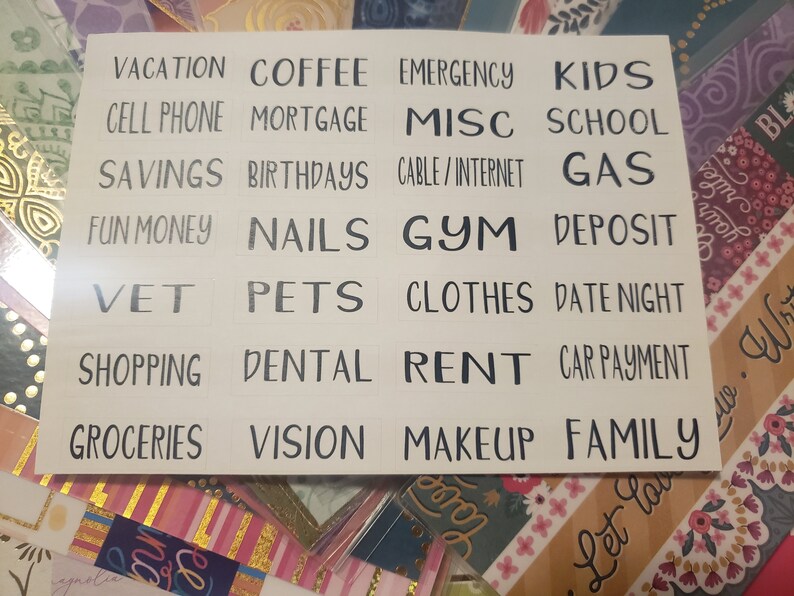 VACATION COFFEE EMERGENCY KIDS
CELL PHONE MORTGAGE MISC SCHOOL
SAVINGS BIRTHDAYS CABLE/INTERNET GAS
FUN MONEY NAILS GYM DEPOSIT
VET PETS CLOTHES DATE NIGHT
SHOPPING DENTAL RENT CAR PAYMENT
GROCERIES VISION MAKEUP FAMILY
Let